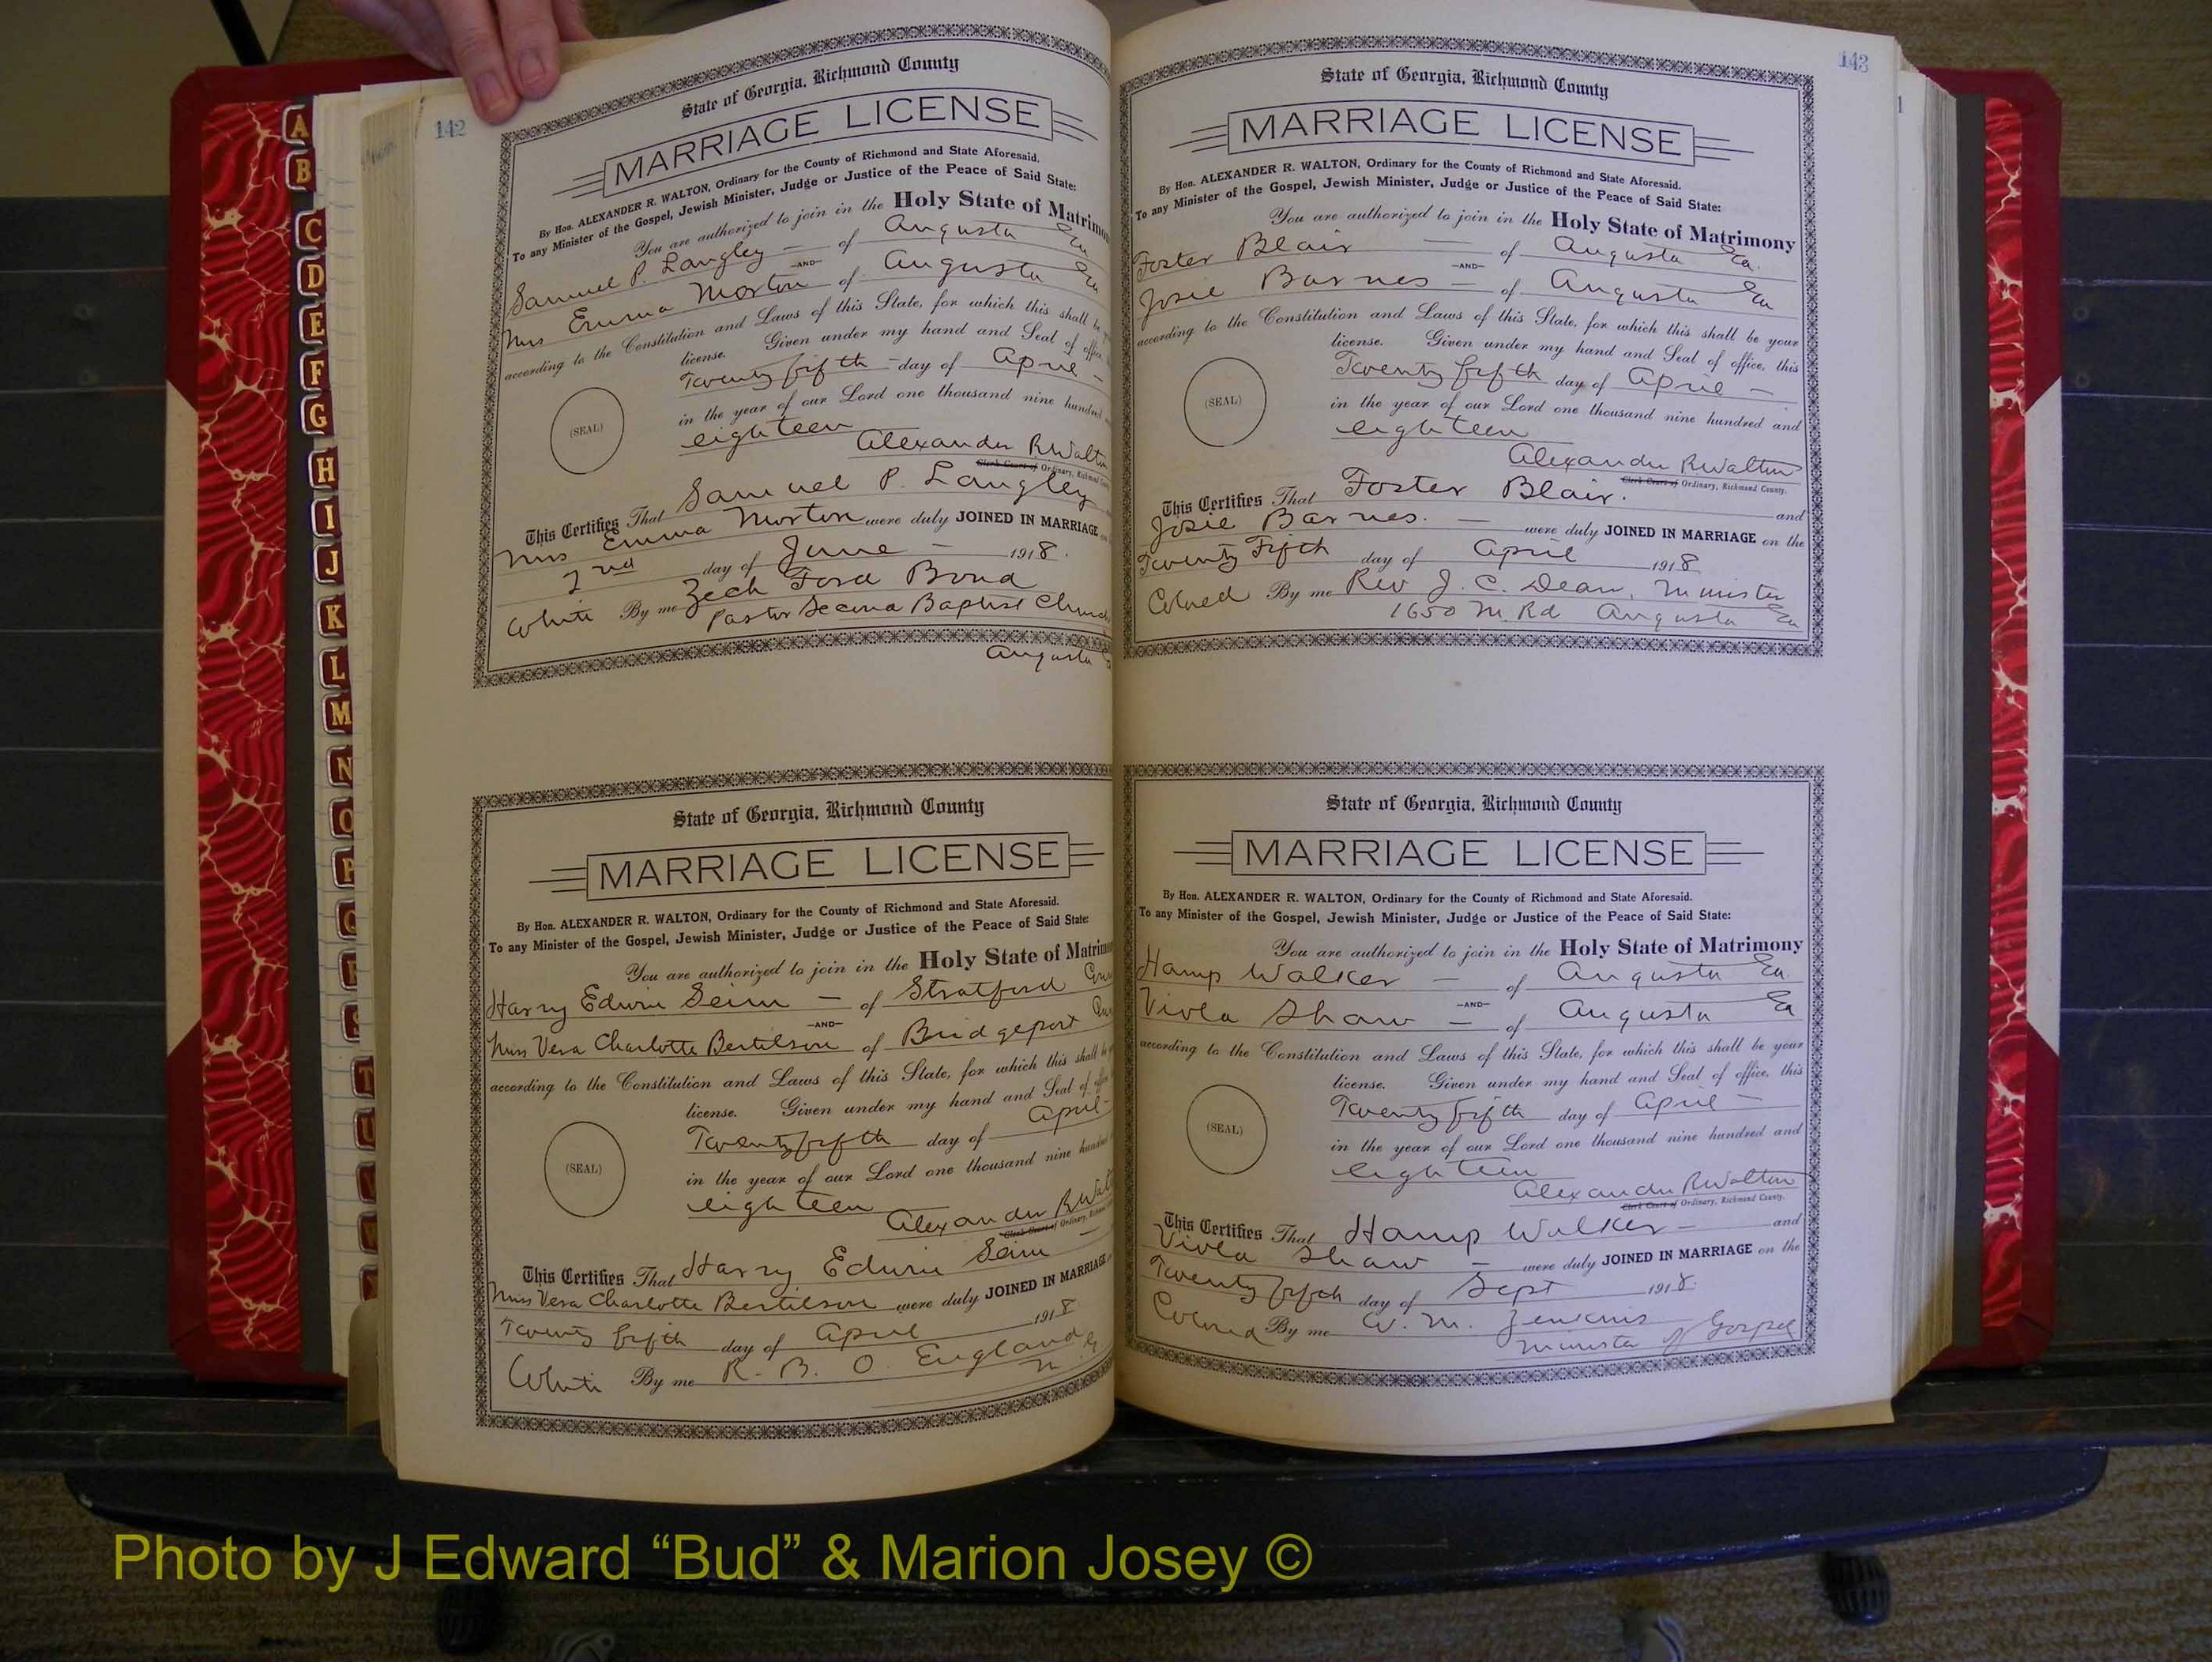 142
State of Georgia, Richmond County
MARRIAGE LICENSE
By Hon. ALEXANDER R. WALTON, Ordinary for the County of Richmond and State Aforesaid.
To any Minister of the Gospel, Jewish Minister, Judge or Justice of the Peace of Said State:
You are authorized to join in the Holy State of Matrimo
Samuel P. Langley — of Augusta Ga
—AND—
Mrs Emma Morton of Augusta Ga
according to the Constitution and Laws of this State, for which this shall be
license. Given under my hand and Seal of office,
Twenty fifth — day of April —
(SEAL)
in the year of our Lord one thousand nine hundred
eighteen
Alexander R Walton
Clerk Court of Ordinary, Richmond
This Certifies That Samuel P. Langley
Mrs Emma Morton were duly JOINED IN MARRIAGE
2nd day of June — 1918.
White By me Zech Ford Bond
Pastor Second Baptist Church
Augusta
State of Georgia, Richmond County
MARRIAGE LICENSE
By Hon. ALEXANDER R. WALTON, Ordinary for the County of Richmond and State Aforesaid.
To any Minister of the Gospel, Jewish Minister, Judge or Justice of the Peace of Said State:
You are authorized to join in the Holy State of Matrim
Harry Edwin Seim — of Stratford Conn
—AND—
Miss Vera Charlotte Bertilson of Bridgeport
according to the Constitution and Laws of this State, for which this shall be
license. Given under my hand and Seal of
Twenty fifth day of April —
(SEAL)
in the year of our Lord one thousand nine hundred
eighteen
Alexander R Walt
Clerk Court of Ordinary,
This Certifies That Harry Edwin Seim —
Miss Vera Charlotte Bertilson were duly JOINED IN MARRIAGE
Twenty fifth day of April 1918
White By me R. B. O. England
143
State of Georgia, Richmond County
MARRIAGE LICENSE
By Hon. ALEXANDER R. WALTON, Ordinary for the County of Richmond and State Aforesaid.
To any Minister of the Gospel, Jewish Minister, Judge or Justice of the Peace of Said State:
You are authorized to join in the Holy State of Matrimony
Foster Blair — of Augusta Ga.
—AND—
Josie Barnes — of Augusta Ga
according to the Constitution and Laws of this State, for which this shall be your
license. Given under my hand and Seal of office, this
Twenty fifth day of April —
(SEAL)
in the year of our Lord one thousand nine hundred and
eighteen
Alexander R Walton
Clerk Court of Ordinary, Richmond County.
This Certifies That Foster Blair. and
Josie Barnes. — were duly JOINED IN MARRIAGE on the
Twenty Fifth day of April 1918
Colored By me Rev J. C. Dean, Minister
1650 M. Rd Augusta Ga
State of Georgia, Richmond County
MARRIAGE LICENSE
By Hon. ALEXANDER R. WALTON, Ordinary for the County of Richmond and State Aforesaid.
To any Minister of the Gospel, Jewish Minister, Judge or Justice of the Peace of Said State:
You are authorized to join in the Holy State of Matrimony
Hamp Walker — of Augusta Ga.
—AND—
Viola Shaw — of Augusta Ga
according to the Constitution and Laws of this State, for which this shall be your
license. Given under my hand and Seal of office, this
Twenty fifth day of April —
(SEAL)
in the year of our Lord one thousand nine hundred and
eighteen
Alexander R Walton
Clerk Court of Ordinary, Richmond County.
This Certifies That Hamp Walker — and
Viola Shaw — were duly JOINED IN MARRIAGE on the
Twenty fifth day of Sept 1918.
Colored By me W. M. Jenkins
Minister of Gospel
A
B
C
D
E
F
G
H
I
J
K
L
M
N
O
P
Q
R
S
T
U
V
W
Photo by J Edward “Bud” & Marion Josey ©